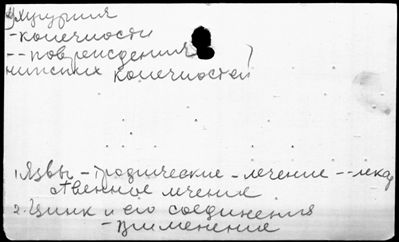 Хирургия
- конечности
-- повреждения
нижних конечностей
1. Язвы - трофические - лечение -- лекар
ственное лечение
2. Цинк и его соединения
- применение